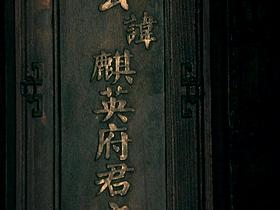 諱麒英府君